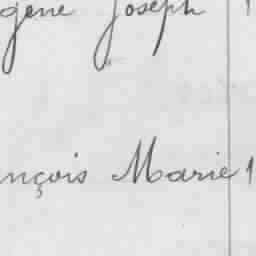 gène Joseph
nçois Marie 1